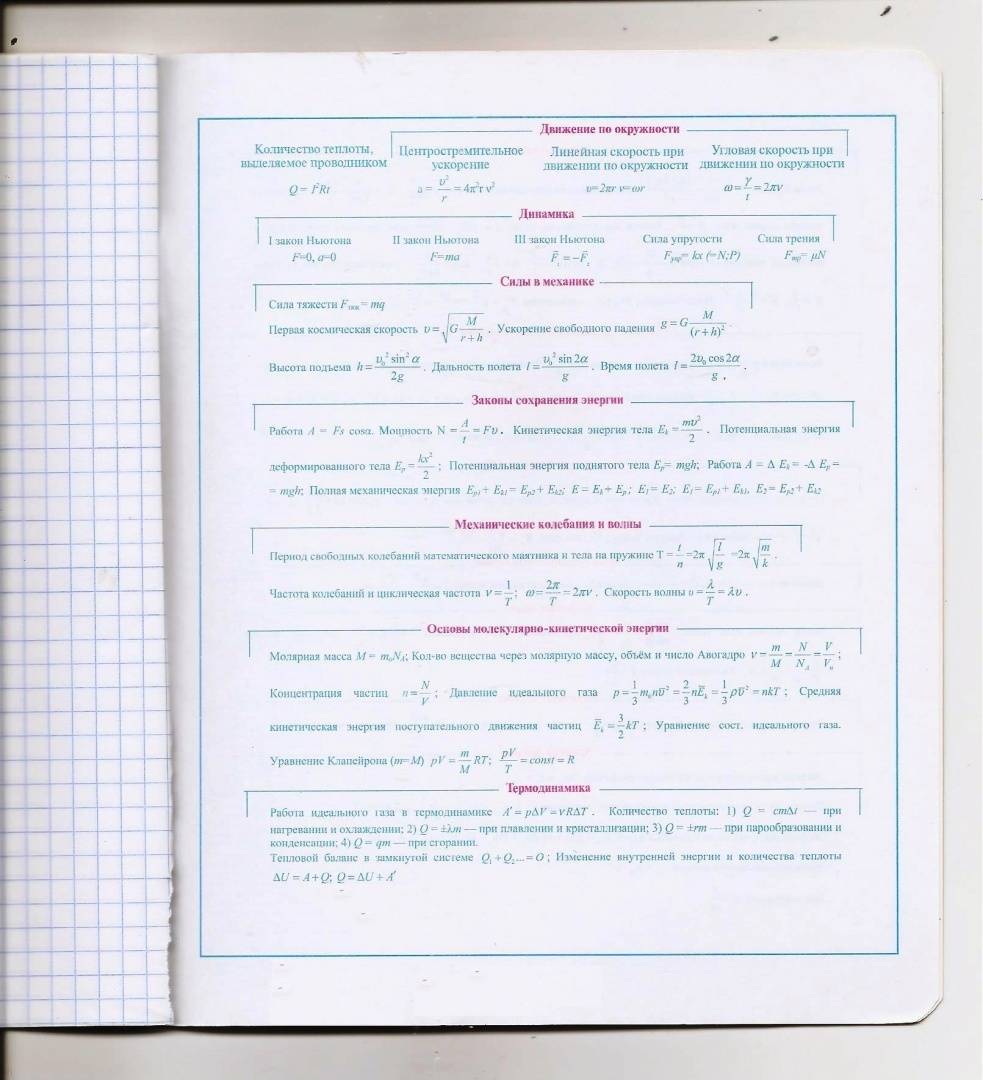 Движение по окружности
Количество теплоты, выделяемое проводником
Q = I²Rt
Центростремительное ускорение
a = υ²/r = 4π²r ν²
Линейная скорость при движении по окружности
υ=2πr ν=ωr
Угловая скорость при движении по окружности
ω = γ/t = 2πν
Динамика
I закон Ньютона II закон Ньютона III закон Ньютона Сила упругости Сила трения
F=0, a=0 F=ma F̄₁ = –F̄₂ Fупр= kx (=N;P) Fтр= μN
Силы в механике
Сила тяжести Fтяж = mq
Первая космическая скорость υ = √(G M/(r+h)) . Ускорение свободного падения g = G M/(r+h)²
Высота подъема h = υ₀² sin² α/2g . Дальность полета l = υ₀² sin 2α/g . Время полета l = 2υ₀ cos 2α/g .
Законы сохранения энергии
Работа A = Fs cosα. Мощность N = A/t = Fυ . Кинетическая энергия тела Ek = mυ²/2 . Потенциальная энергия
деформированного тела Ep = kx²/2 ; Потенциальная энергия поднятого тела Ep= mgh; Работа A = Δ Ek = -Δ Ep =
= mgh; Полная механическая энергия Ep1 + Ek1 = Ep2 + Ek2; E = Ek + Ep; E1 = E2; E1 = Ep1 + Ek1, E2 = Ep2 + Ek2
Механические колебания и волны
Период свободных колебаний математического маятника и тела на пружине T = t/n =2π √(l/g) =2π √(m/k) .
Частота колебаний и циклическая частота ν = 1/T ; ω = 2π/T = 2πν . Скорость волны υ = λ/T = λυ .
Основы молекулярно-кинетической энергии
Молярная масса M = m₀NA; Кол-во вещества через молярную массу, объём и число Авогадро ν = m/M = N/NA = V/Vn ;
Концентрация частиц n = N/V ; Давление идеального газа p = 1/3 m₀nῡ² = 2/3 nĒk = 1/3 ρῡ² = nkT ; Средняя
кинетическая энергия поступательного движения частиц Ēk = 3/2 kT ; Уравнение сост. идеального газа.
Уравнение Клапейрона (m=M) pV = m/M RT; pV/T = const = R
Термодинамика
Работа идеального газа в термодинамике A′ = pΔV = νRΔT . Количество теплоты: 1) Q = cmΔt — при
нагревании и охлаждении; 2) Q = ±λm — при плавлении и кристаллизации; 3) Q = ±rm — при парообразовании и
конденсации; 4) Q = qm — при сгорании.
Тепловой баланс в замкнутой системе Q₁ + Q₂... = O ; Изменение внутренней энергии и количества теплоты
ΔU = A+Q; Q = ΔU + A′